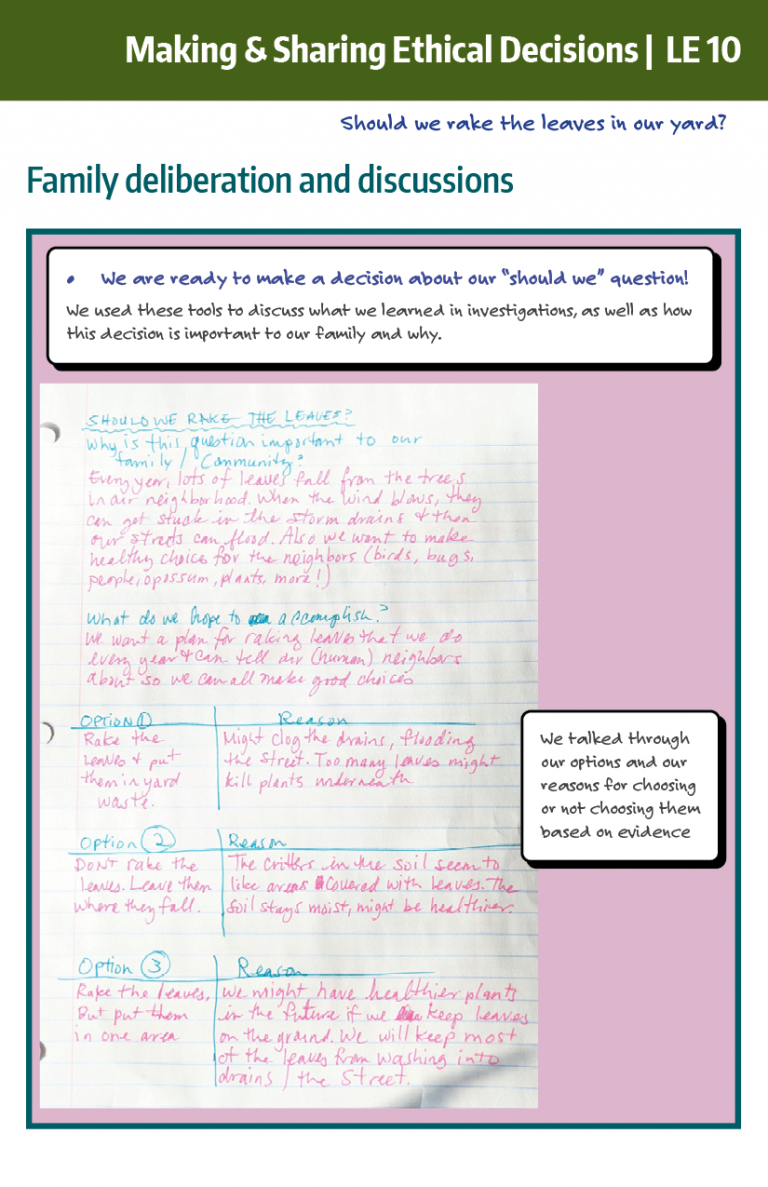 Making & Sharing Ethical Decisions | LE 10
Should we rake the leaves in our yard?
Family deliberation and discussions
• We are ready to make a decision about our "should we" question!
We used these tools to discuss what we learned in investigations, as well as how
this decision is important to our family and why.
SHOULD WE RAKE THE LEAVES?
Why is this question important to our
family / Community?
Every year, lots of leaves fall from the trees
in our neighborhood. When the wind blows, they
can get stuck in the storm drains & then
our streets can flood. Also we want to make
healthy choice for the neighbors (birds, bugs,
people, opossum, plants, more!)
What do we hope to accomplish?
We want a plan for raking leaves that we do
every year & can tell our (human) neighbors
about so we can all make good choices
OPTION 1 Reason
Rake the Might clog the drains, flooding
leaves & put the street. Too many leaves might
them in yard kill plants underneath
waste.
We talked through
our options and our
reasons for choosing
or not choosing them
based on evidence
Option 2 Reason
DON'T rake the The critters in the soil seem to
leaves. Leave them like areas covered with leaves. The
where they fall. soil stays moist, might be healthier.
Option 3 Reason
Rake the leaves, We might have healthier plants
But put them in the future if we keep leaves
in one area on the ground. We will keep most
of the leaves from washing into
drains / the street.